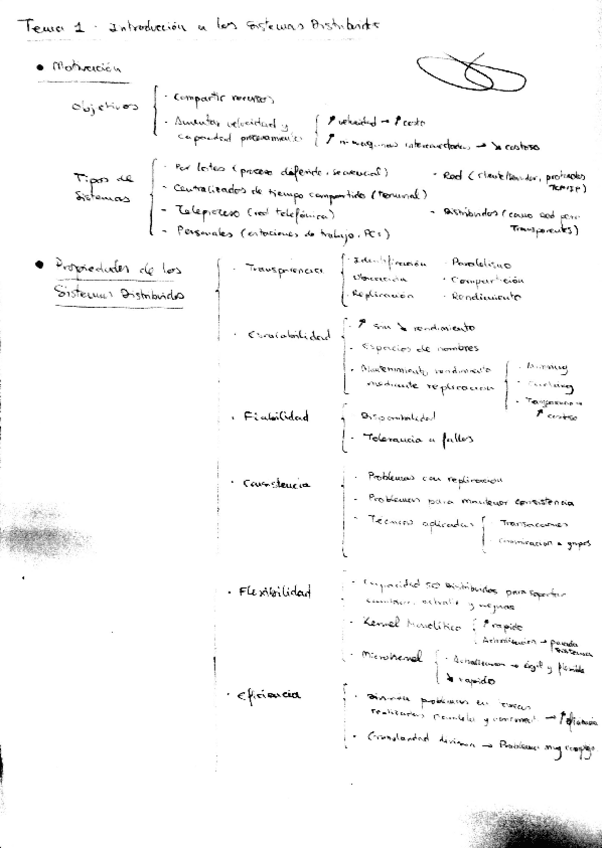 Tema 1 - Introducción a los Sistemas Distribuidos
• Motivación
Objetivos
- Compartir recursos
- Aumentar velocidad y
capacidad procesamiento
↑ velocidad → ↑ costo
↑ nº maquinas interconectadas → ↘ costoso
Tipos de
Sistemas
- Por lotes (proceso diferido, secuencial)
- Centralizados de tiempo compartido (terminal)
- Teleproceso (red telefónica)
- Personales (estaciones de trabajo, PCs)
- Red (cliente/servidor, protocolos
TCP/IP)
- Distribuidos (como Red pero
Transparentes)
• Propiedades de los
Sistemas Distribuidos
- Transparencia
- Identificación
- Ubicación
- Replicación
- Paralelismo
- Compartición
- Rendimiento
- Escalabilidad
- ↑ sin ↘ rendimiento
- Espacios de nombres
- Mantenimiento rendimiento
mediante replicación
- Caching
- Transparencia
↑ costoso
- Fiabilidad
- Disponibilidad
- Tolerancia a fallos
- Consistencia
- Problemas con replicación
- Problemas para mantener consistencia
- Técnicas aplicadas
- Transacciones
- Comunicación a grupos
- Flexibilidad
- Capacidad SO Distribuidos para soportar
y mejoras
- Kernel Monolítico
↑ rapido
Actualización → parada
sistema
- Microkernel
- Actualización → ágil y flexible
↘ rapido
- Eficiencia
- problemas en tareas
→ ↑ eficiencia
- Granularidad → Problemas